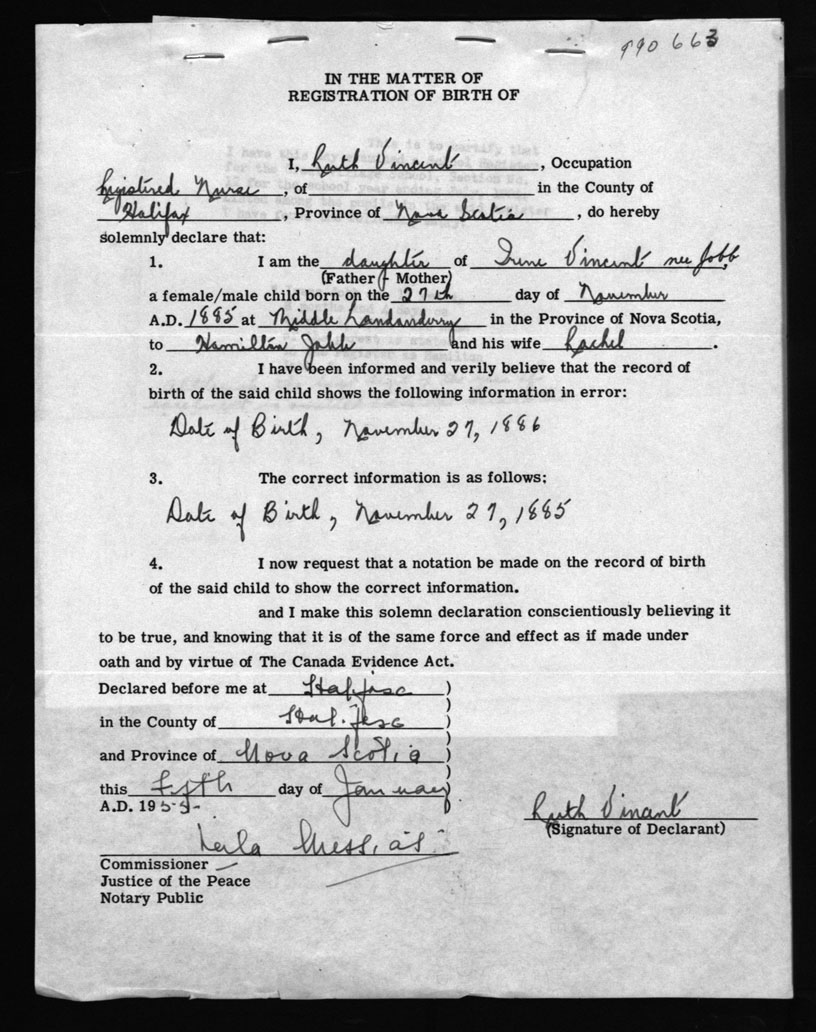 990 663
IN THE MATTER OF
REGISTRATION OF BIRTH OF
I, Ruth Vincent, Occupation
Registered Nurse, of in the County of
Halifax, Province of Nova Scotia, do hereby
solemnly declare that:
1. I am the daughter of Irene Vincent nee Jobb,
(Father - Mother)
a female/male child born on the 27th day of November
A.D. 1885 at Middle Londonderry in the Province of Nova Scotia,
to Hamilton Jobb and his wife Rachel.
2. I have been informed and verily believe that the record of
birth of the said child shows the following information in error:
Date of Birth, November 27, 1886
3. The correct information is as follows:
Date of Birth, November 27, 1885
4. I now request that a notation be made on the record of birth
of the said child to show the correct information.
and I make this solemn declaration conscientiously believing it
to be true, and knowing that it is of the same force and effect as if made under
oath and by virtue of The Canada Evidence Act.
Declared before me at Halifax )
in the County of Halifax )
and Province of Nova Scotia )
this fifth day of January )
A.D. 1955-
Ruth Vincent
(Signature of Declarant)
Commissioner
Justice of the Peace
Notary Public